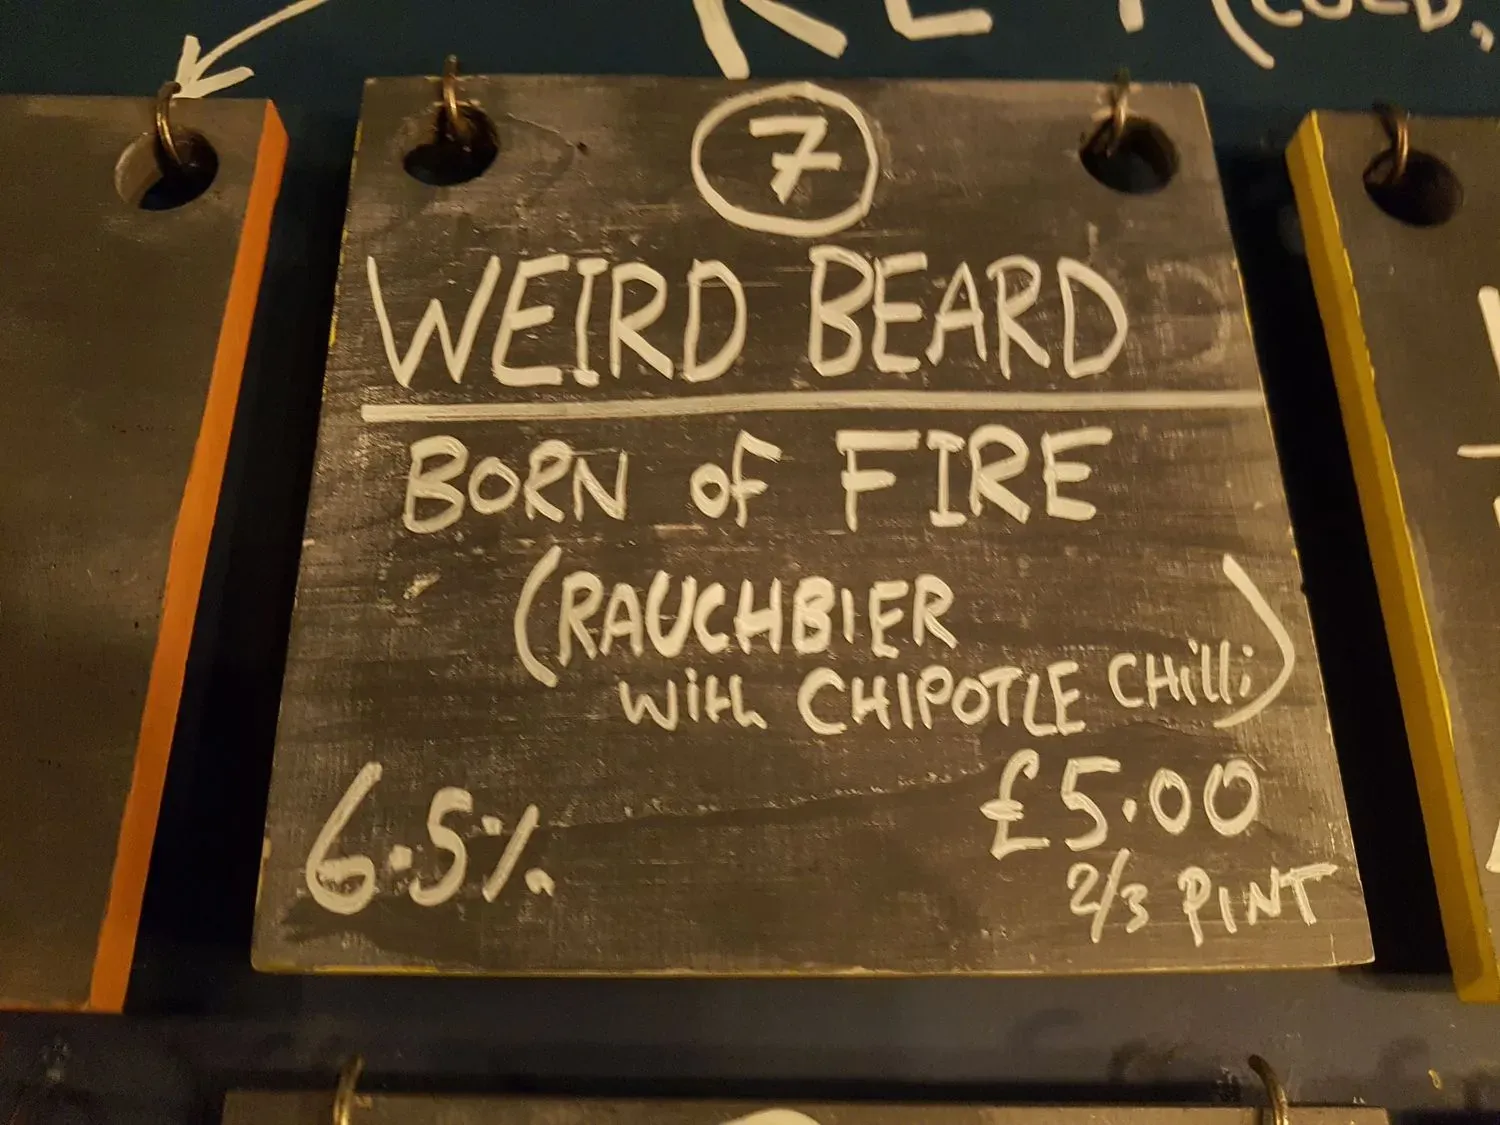 7
WEIRD BEARD
BORN of FIRE
(RAUCHBIER
with CHIPOTLE CHilli)
6.5%
£5.00
2/3 PINT